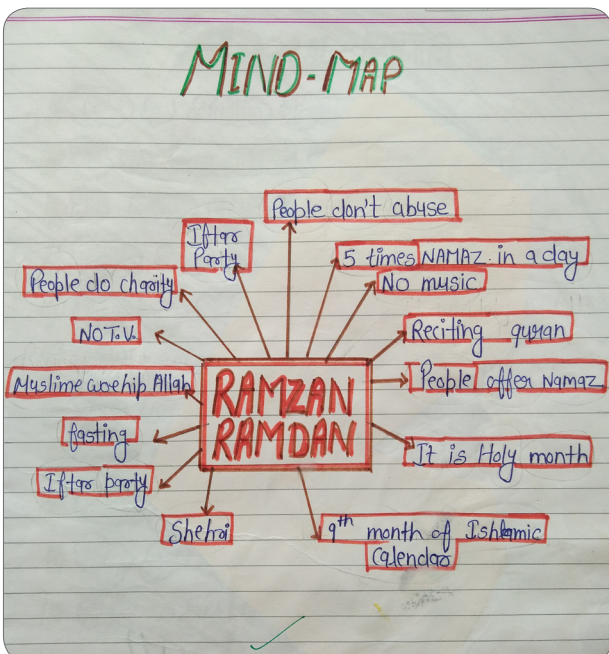 MIND-MAP
People don't abuse
Iftar
Party
5 times NAMAZ in a day
People do charity
No music
NO T.V.
Reciting quran
Muslime worehip Allah
RAMZAN
RAMDAN
People offer Namaz
fasting
It is Holy month
Iftar party
Shehri
9th month of Ishlamic
Calendar